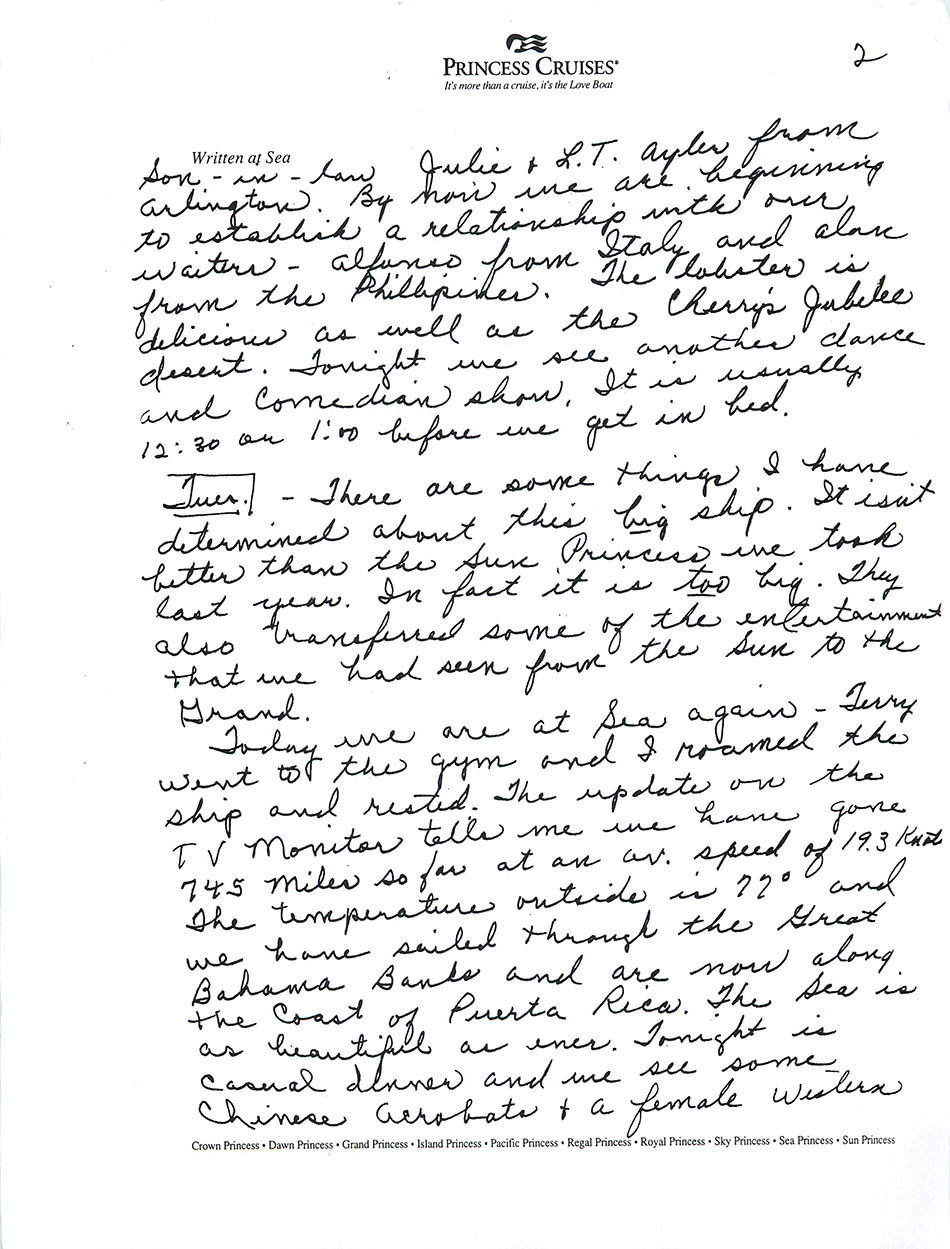 2
PRINCESS CRUISES®
It's more than a cruise, it's the Love Boat
Written at Sea
Son-in-law Julie & L.T. Ayler from
Arlington. By now we are beginning
to establish a relationship with our
waiters - Alfonso from Italy and Alan
from the Phillipines. The lobster is
delicious as well as the Cherry's Jubilee
desert. Tonight we see another dance
and Comedian show. It is usually
12:30 or 1:00 before we get in bed.
Tues. - There are some things I have
determined about this big ship. It isn't
better than the Sun Princess we took
last year. In fact it is too big. They
also transferred some of the entertainment
that we had seen from the Sun to the
Grand.
Today we are at Sea again - Terry
went to the gym and I roamed the
ship and rested. The update on the
TV Monitor tells me we have gone
745 Miles so far at an av. speed of 19.3 Knots
The temperature outside is 77° and
we have sailed through the Great
Bahama Banks and are now along
the Coast of Puerta Rica. The Sea is
as beautiful as ever. Tonight is
Casual dinner and we see some
Chinese Acrobats & a female Western
Crown Princess • Dawn Princess • Grand Princess • Island Princess • Pacific Princess • Regal Princess • Royal Princess • Sky Princess • Sea Princess • Sun Princess